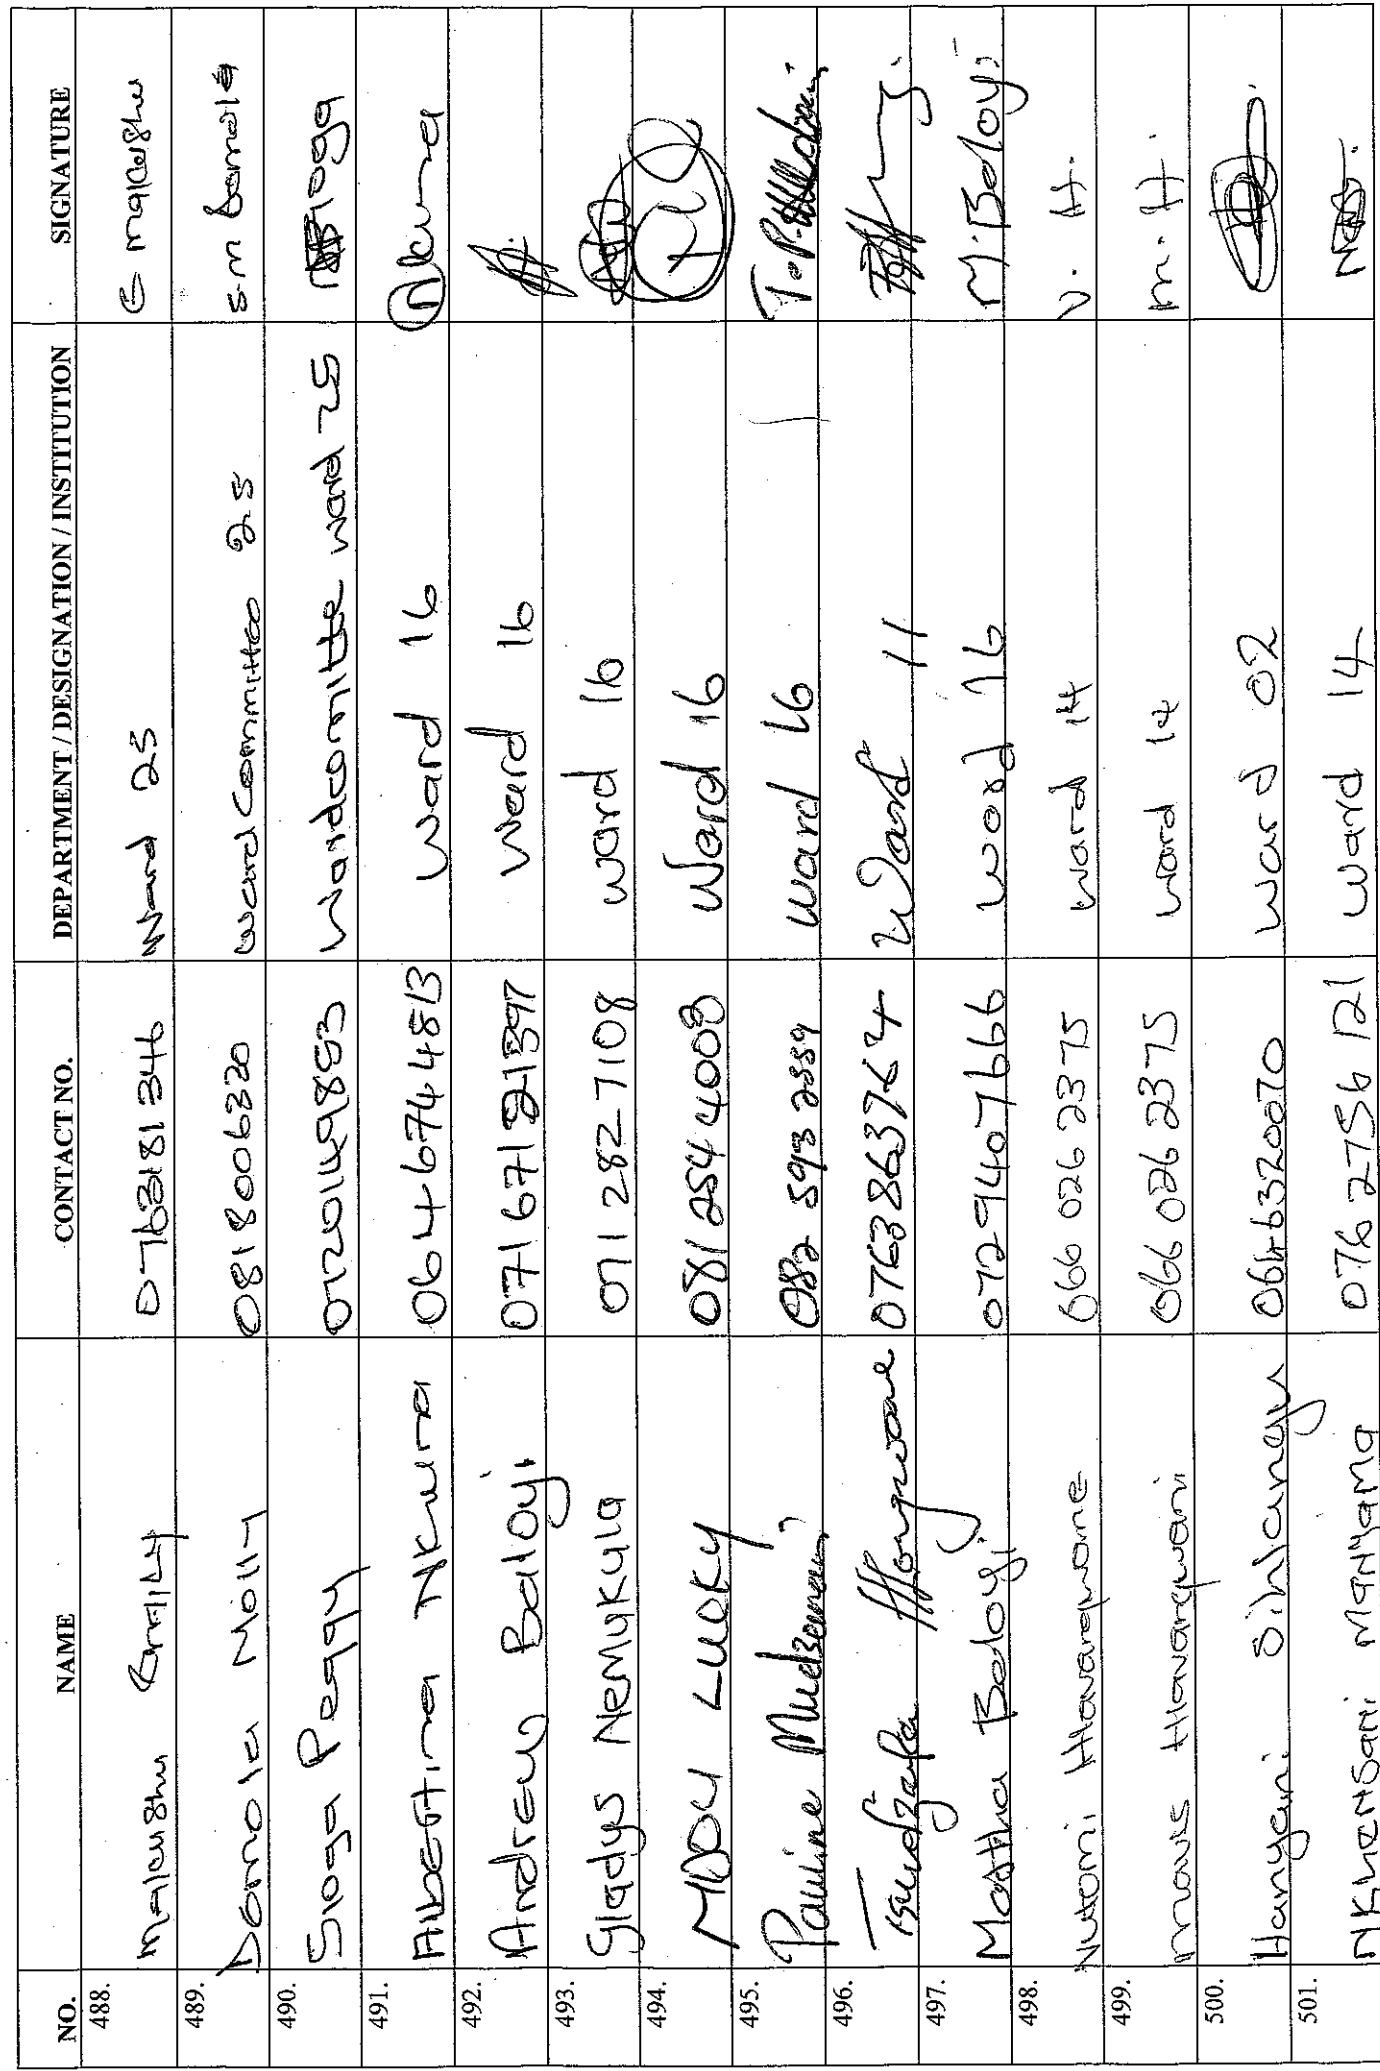 NO. NAME CONTACT NO. DEPARTMENT / DESIGNATION / INSTITUTION SIGNATURE
488. Makushu Emily 0763181346 Ward 25 E makushu
489. Damola Molly 0818006320 Ward Committee 25 S.m Damola
490. Sioga Peggy 0720149853 Wardcomitte ward 25
491. Albertina Nkuna 0646744813 Ward 16 A Kuna
492. Andrew Baloyi 07167121397 Ward 16
493. Gladys Nemukula 071 282 7108 ward 16
494. MDOU LUCKY 081 254 4003 Ward 16
495. Pauline 082 593 2559 Ward 16 T.P.
496. Tsudzafa Hongwane 0763863764 Ward 11
497. Martha Baloyi 0729407666 Word 16 M.Baloyi
498. Nutomi 066 026 2375 Ward 14 V. H.
499. mavis 066 026 2375 Ward 14 m. H.
500. Hanyani 0646320070 Ward 02
501. NKHENSANI MANYAMA 076 2756 121 Ward 14